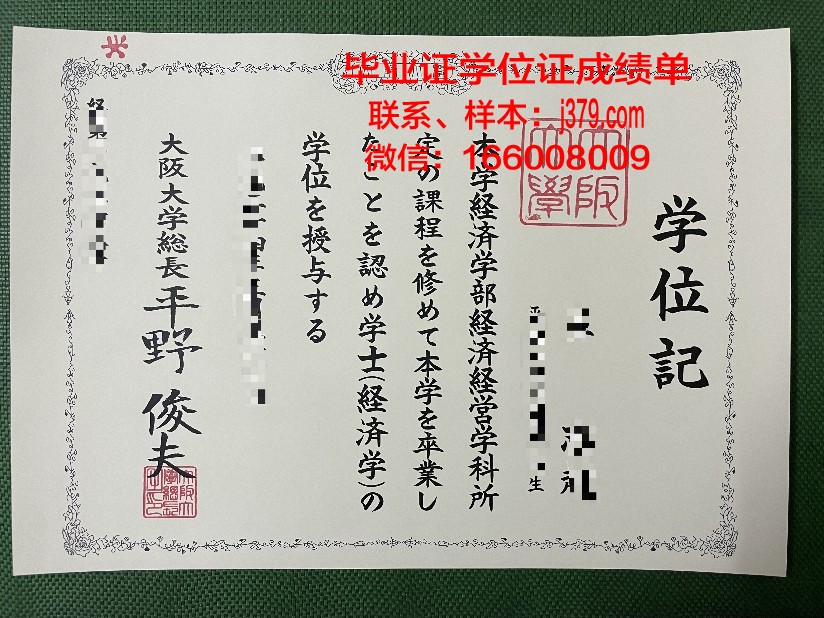 毕业证学位证成绩单
联系、样本：j379.com
微信：166008009
学位記
大阪大学
生
本学経済学部経済経営学科所
定の課程を修めて本学を卒業し
たことを認め学士(経済学)の
学位を授与する
大阪大学総長
平野俊夫